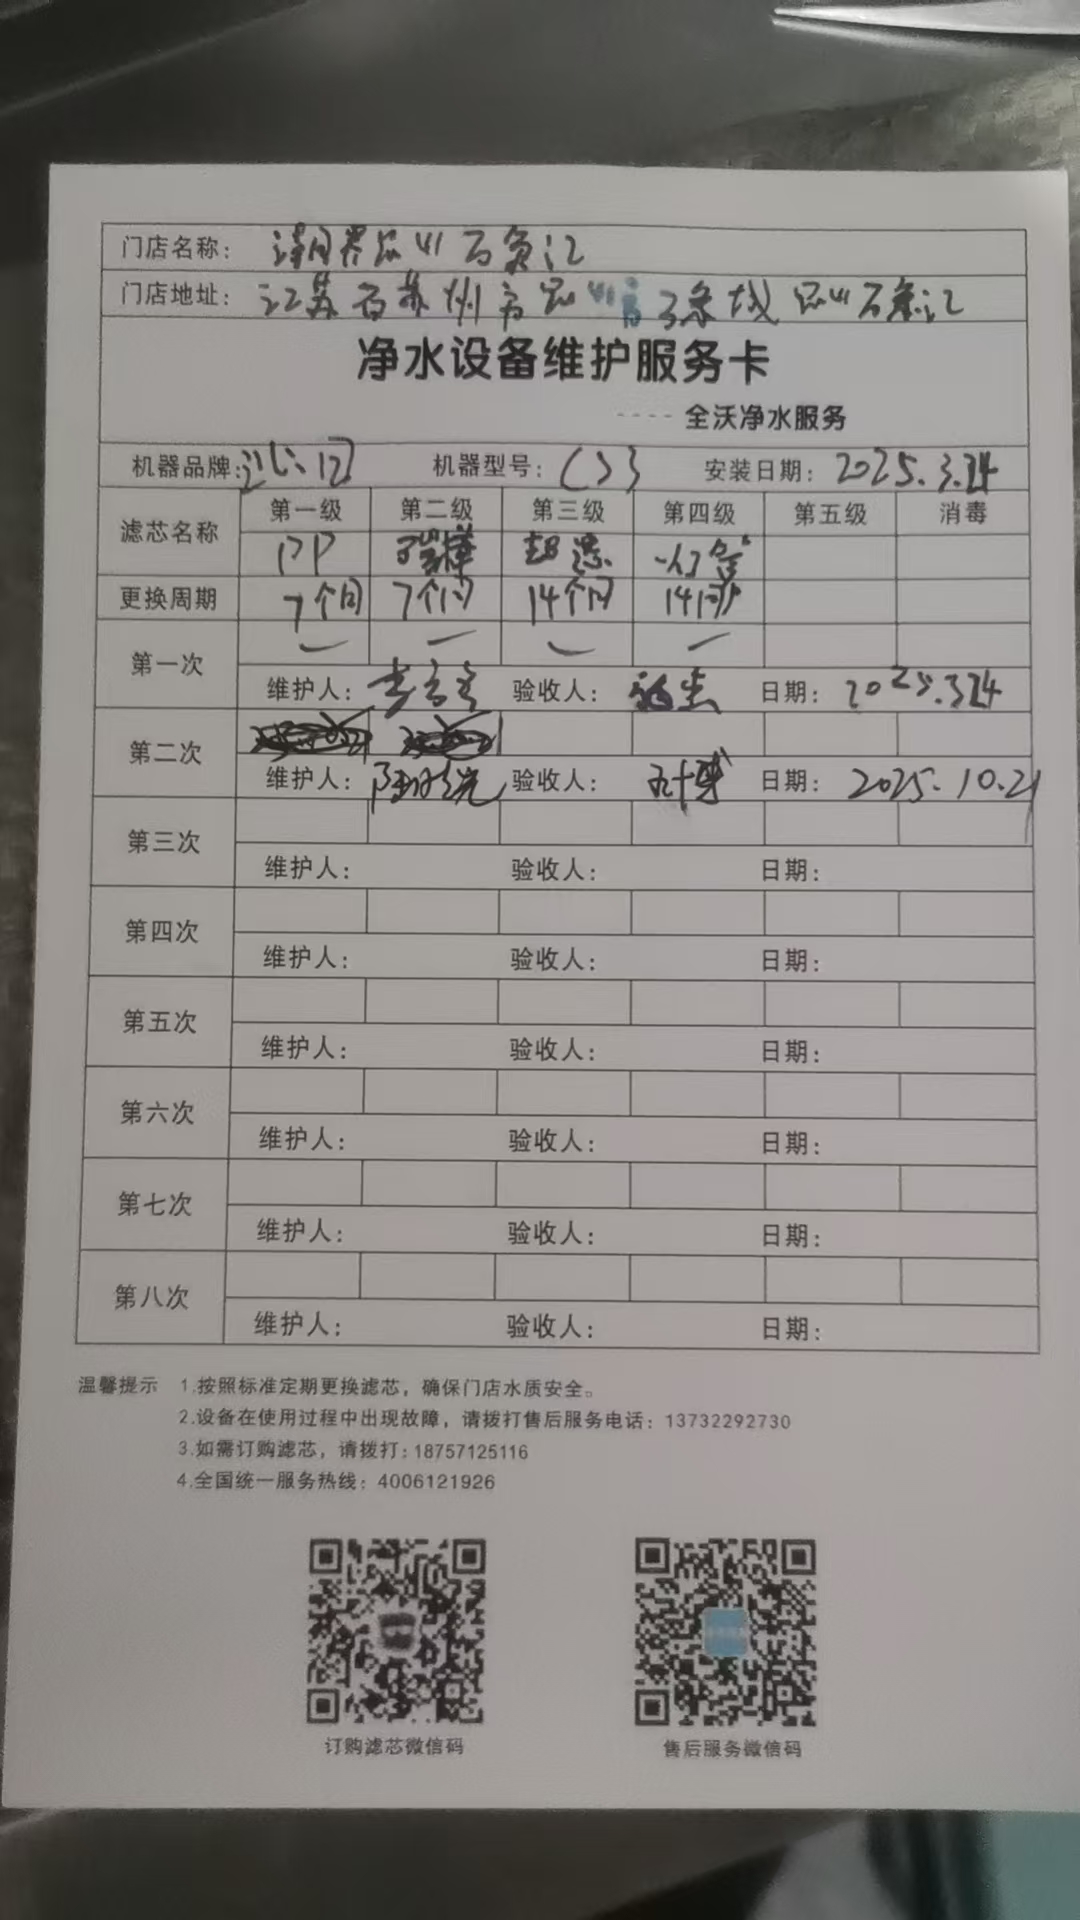 门店名称:
门店地址: 江苏省苏州市
净水设备维护服务卡
---- 全沃净水服务
机器品牌: 机器型号: 安装日期: 2025.3.24
滤芯名称 第一级 第二级 第三级 第四级 第五级 消毒
PP 超滤
更换周期 7个月 7个月 14个月 14个月
第一次
维护人: 验收人: 日期: 2025.3.24
第二次
维护人: 验收人: 日期: 2025.10.21
第三次
维护人: 验收人: 日期:
第四次
维护人: 验收人: 日期:
第五次
维护人: 验收人: 日期:
第六次
维护人: 验收人: 日期:
第七次
维护人: 验收人: 日期:
第八次
维护人: 验收人: 日期:
温馨提示 1.按照标准定期更换滤芯，确保门店水质安全。
2.设备在使用过程中出现故障，请拨打售后服务电话: 13732292730
3.如需订购滤芯，请拨打: 18757125116
4.全国统一服务热线: 4006121926
订购滤芯微信码 售后服务微信码